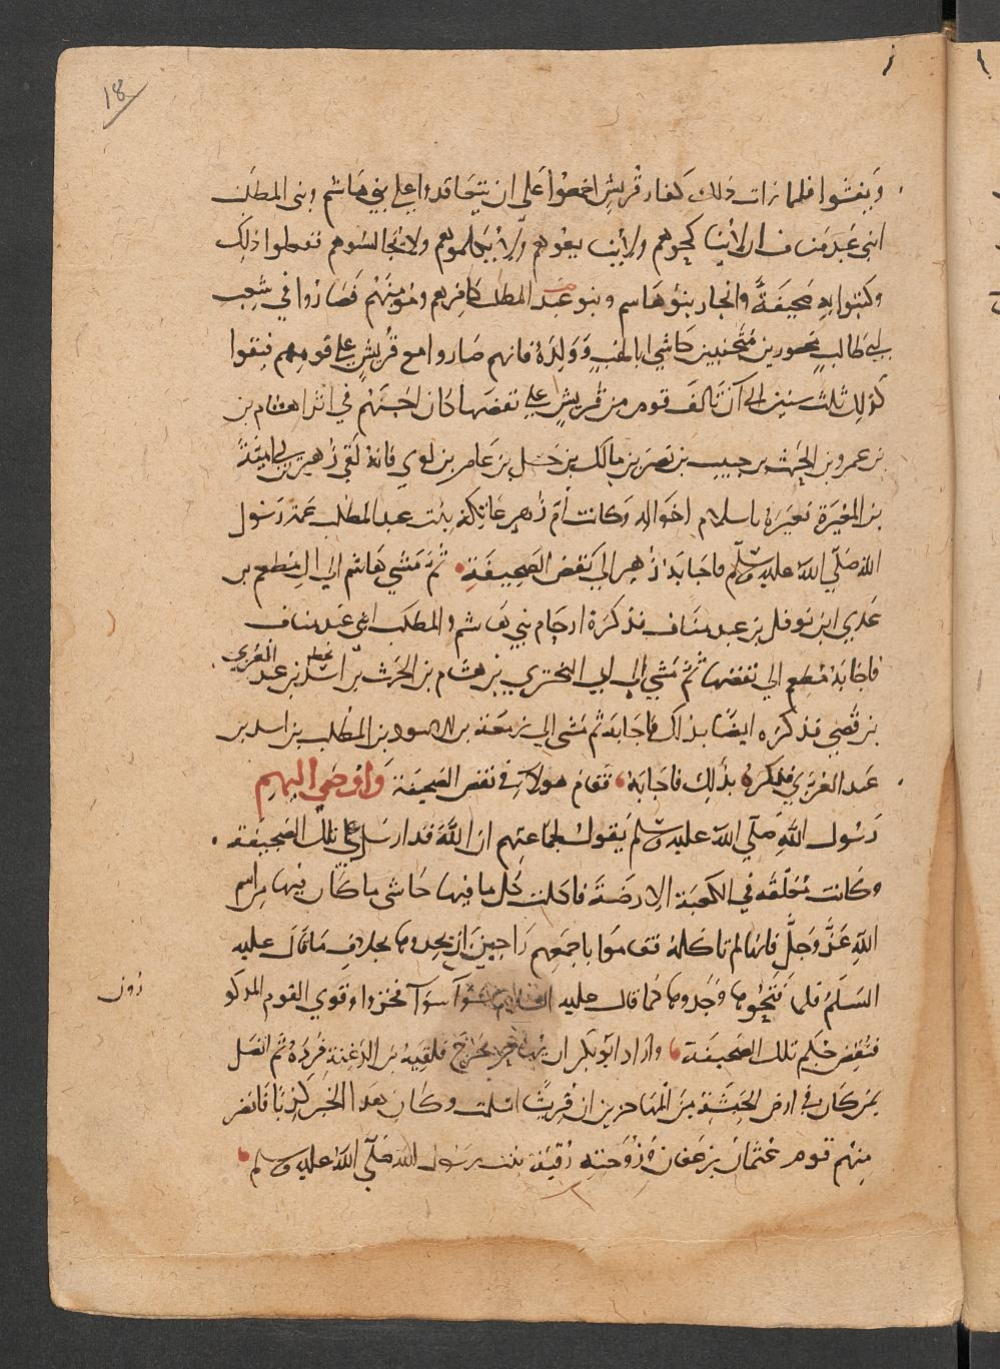 18
ويفشوا فلما رات ذلك كفار قريش اجمعوا على ان يتعاقدوا على بني هاشم وبني المطلب
ابني عبد مناف ان لا ينا كحوهم ولا يبا يعوهم ولا يكلموهم ولا يجالسوهم ففعلوا ذلك
وكتبوا به صحيفة وانحاز بنو هاشم وبنو عبد المطلب كافرهم ومؤمنهم فصاروا في شعب
ابي طالب محصورين متجنبين حاشي ابا لهب وولده فانهم صاروا مع قريش على قومهم فبقوا
كذلك ثلث سنين الى ان تالف قوم من قريش على نقضها كان احسنهم في اثرا هشام بن
بن عمرو بن الحرث بن حبيب بن نصر بن مالك بن حسل بن عامر بن لوي فانه لقي زهير بن ابي امية
بن المغيرة فعيره باسلام اخواله وكانت ام زهير عاتكة بنت عبد المطلب عمة رسول
الله صلي الله عليه وسلم فاجابه زهير الي نقض الصحيفة ثم مشي هاشم الي المطعم بن
عدي ابن نوفل بن عبد مناف فذكره ارحام بني هاشم والمطلب ابني عبد مناف
فاجابه مطعم الي نقضها ثم مشي الي ابي البختري بن هشام بن الحرث بن اسد بن عبد العزي
بن قصي فذكره ايضا بذاك فاجابه ثم مشى الي زمعة بن الاسود بن المطلب بن اسد بن
عبد العزي فذكره بذلك فاجابه فقام هولاء في نقض الصحيفة واوحي اليهم
رسول الله صلي الله عليه وسلم يقول لجماعتهم ان الله قد ارسل على تلك الصحيفة
وكانت معلقه في الكعبة الارضة فاكلت كل ما فيها حاشى ما كان فيها من اسم
الله عز وجل فانها لم تاكله فقاموا باجمعهم راجين ان يجدوها بخلاف ما قال عليه
السلم فلما فتحوها وجدوها كما قال عليه السلام سوآ سوآ فخزوا وقوي القوم المذكو
رون
فنقض حكم تلك الصحيفة واراد ابو بكر ان يهاجر فخرج فلقيه بن الدغنة فرده ثم اتصل
بمن كان في ارض الحبشة من المهاجرين ان قريشا اسلمت وكان هذا الخبر كذبا فانصر
منهم قوم عثمان بن عفان وزوجته رقية بنت رسول الله صلي الله عليه وسلم